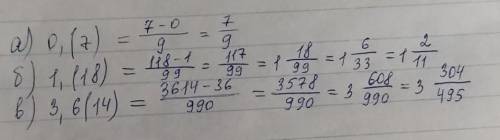 а) 0,(7) = \frac{7-0}{9} = \frac{7}{9}
б) 1,(18) = \frac{118-1}{99} = \frac{117}{99} = 1\frac{18}{99} = 1\frac{6}{33} = 1\frac{2}{11}
в) 3,6(14) = \frac{3614-36}{990} = \frac{3578}{990} = 3\frac{608}{990} = 3\frac{304}{495}